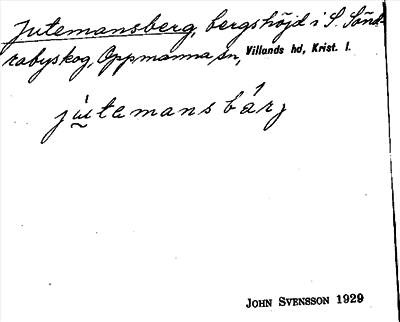 Jutemansberg, bergshöjd i S. Sönd-
rabyskog, Oppmanna sn, Villands hd, Krist. l.
jútemansbárj
JOHN SVENSSON 1929